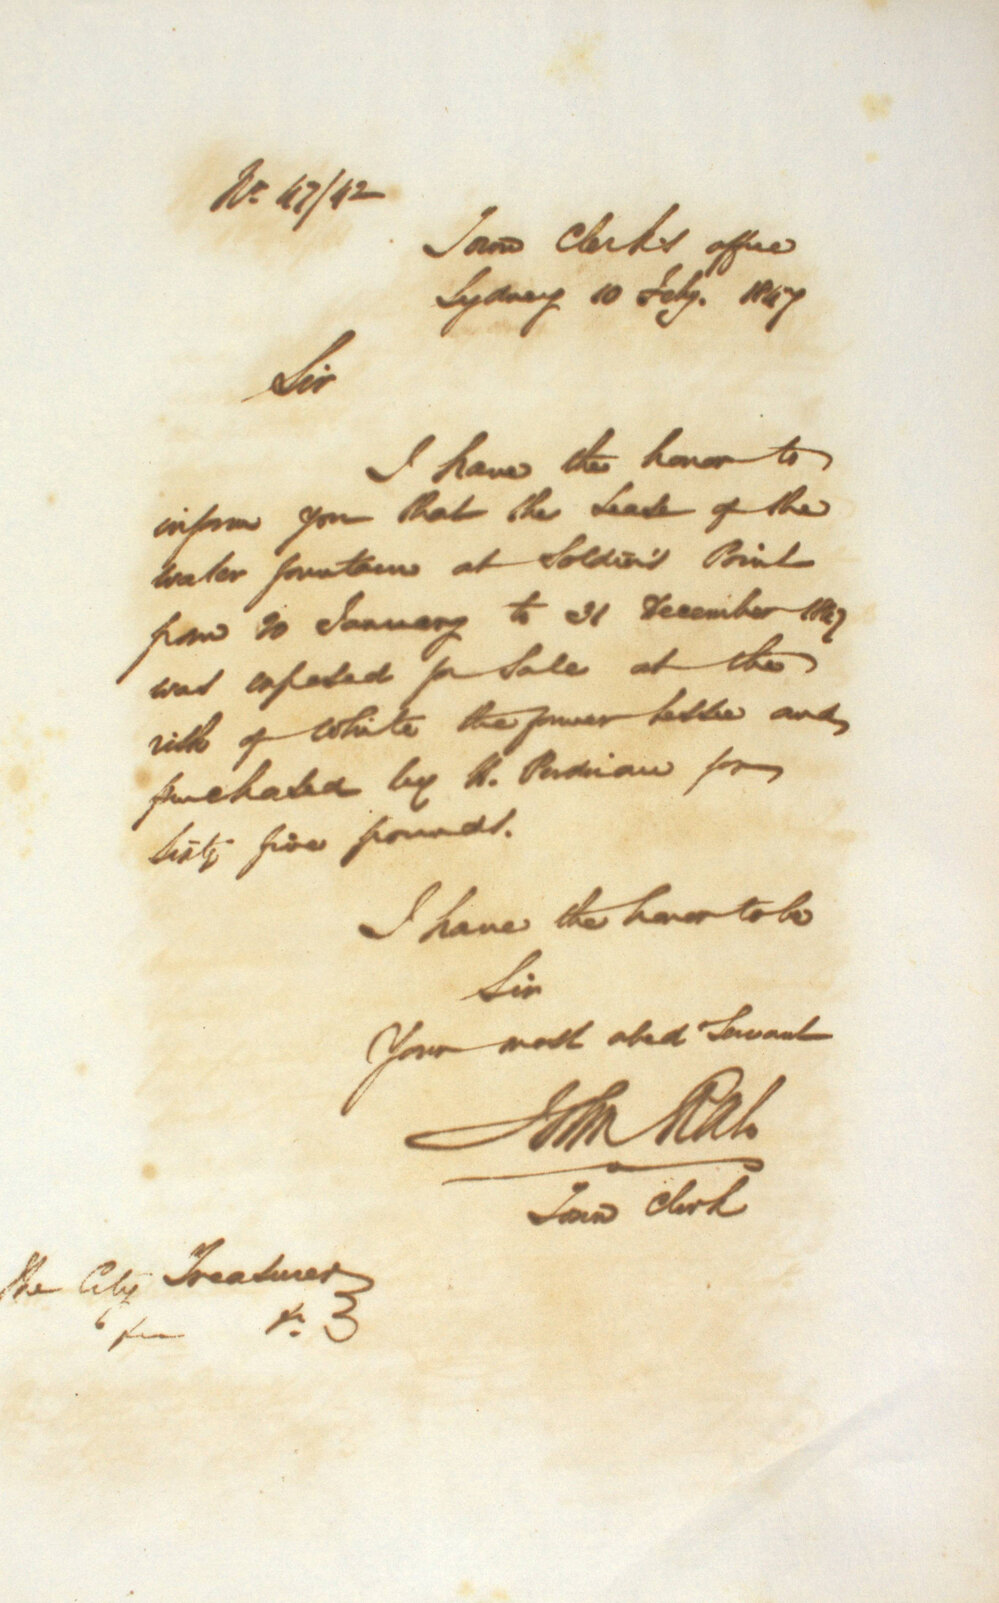 No. 47/42
Town Clerk's office
Sydney 10 Feby. 1847
Sir
I have the honor to
inform you that the Lease of the
water fountain at Soldier's Point
from 20 January to 31 December 1847
was exposed for Sale at the
risk of White the former Lessee and
purchased by H. Perdriau for
Sixty five pounds.
I have the honor to be
Sir
Your most obed Servant
John Rae
Town Clerk
The City Treasurer
&c.